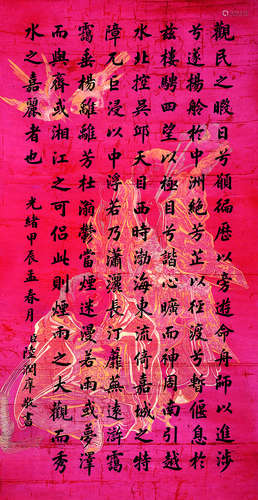 觀民之暇日兮願徧歷以旁遊命舟師以進涉
兮遂楊舲於中洲絕芳芷以徑渡兮暫偃息於
茲樓騁四望以極目兮諧心曠而神周南引越
水北控吳邱天目西時渤海東流倚嘉城之特
障亢巨浸以中浮若乃瀟灑長汀蘼蕪遠滸靄
靄垂楊離離芳杜滃鬱當煙迷漫若雨或夢澤
而與齊或湘江之可侶此則煙雨之大觀而秀
水之嘉麗者也
光緒甲辰孟春月 臣陸潤庠敬書